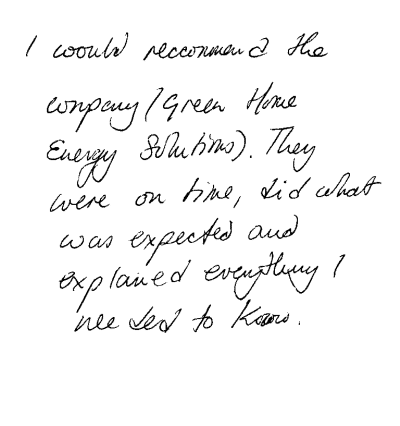 I would reccommend the
company (Green Home
Energy Solutions). They
were on time, did what
was expected and
explained everything I
needed to know.